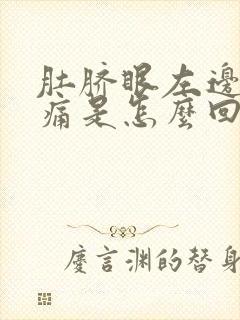 肚脐眼左邊
痛是怎麼回
慶言渊的替身